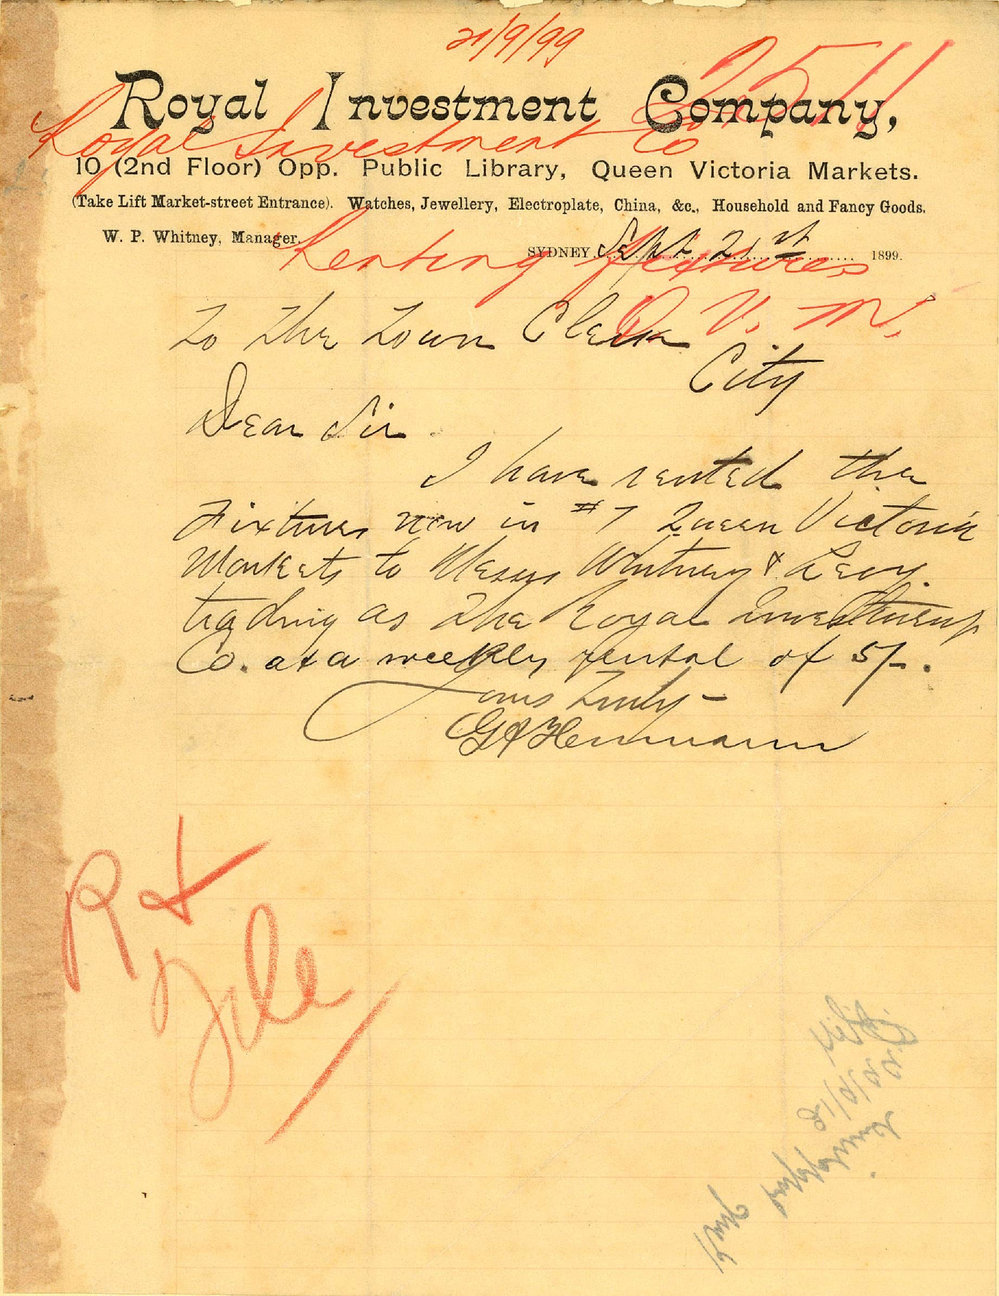 21/9/99
2511
Royal Investment Company,
Royal Investment Co
10 (2nd Floor) Opp. Public Library, Queen Victoria Markets.
(Take Lift Market-street Entrance). Watches, Jewellery, Electroplate, China, &c., Household and Fancy Goods.
W. P. Whitney, Manager.
SYDNEY Sept 21st 1899.
Renting fixtures
Q. V. M.
To The Town Clerk
City
Dear Sir
I have rented the
Fixtures now in #7 Queen Victoria
Markets to Messrs Whitney & Levy.
trading as The Royal Investment
Co. at a weekly rental of 5/-.
Yours Truly –
Hermann
R +
File